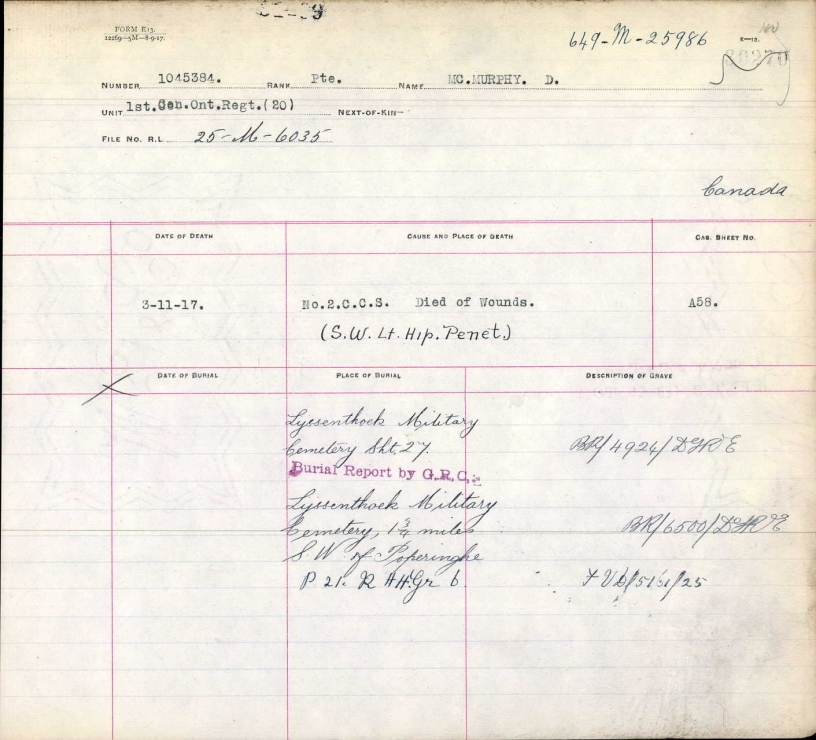 FORM E13.
12269—5M—8-9-17.
649-M-25986
E—13.
NUMBER 1045384. RANK Pte. NAME MC.MURPHY. D.
UNIT 1st.Cen.Ont.Regt.(20) NEXT-OF-KIN—
FILE No. R.L. 25-M-6035
Canada
DATE OF DEATH CAUSE AND PLACE OF DEATH CAS. SHEET NO.
3-11-17. No.2.C.C.S. Died of Wounds. A58.
(S.W. Lt. Hip. Penet.)
DATE OF BURIAL PLACE OF BURIAL DESCRIPTION OF GRAVE
Lyssenthoek Military
Cemetery Sht. 27. BR/4924/DGR&E
Burial Report by G.R.C.
Lyssenthoek Military
Cemetery, 1 3/4 miles BR/6500/DGR&E
S.W. of Poperinghe
P 21. R AH. Gr 6.